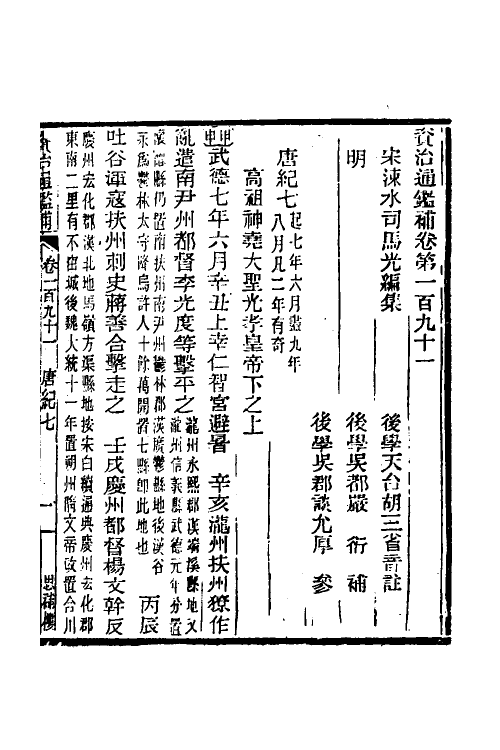 資治通鑑補卷第一百九十一
宋涑水司馬光編集 後學天台胡三省音註
明 後學吳郡嚴 衍 補
後學吳郡談允厚 參
唐紀七 起七年六月盡九年八月凡二年有奇
高祖神堯大聖光孝皇帝下之上
甲申 武德七年六月辛丑上幸仁智宮避暑 辛亥瀧州扶州獠作
亂遣南尹州都督李光度等擊平之 瀧州永熙郡漢端溪縣地又
瀧州信義縣武德元年分置
懷德縣仍置南扶州南尹州鬱林郡漢廣鬱縣地後漢谷
永爲鬱林太守降烏滸人十餘萬開省七縣卽此地也 丙辰
吐谷渾寇扶州刺史蔣善合擊走之 壬戌慶州都督楊文幹反
慶州宏化郡漢北地馬嶺方渠縣地按宋白續通典慶州宏化郡
東南二里有不窋城後魏大統十一年置朔州隋文帝改置合川
資治通鑑補 卷一百九十一 唐紀七 一 思補樓